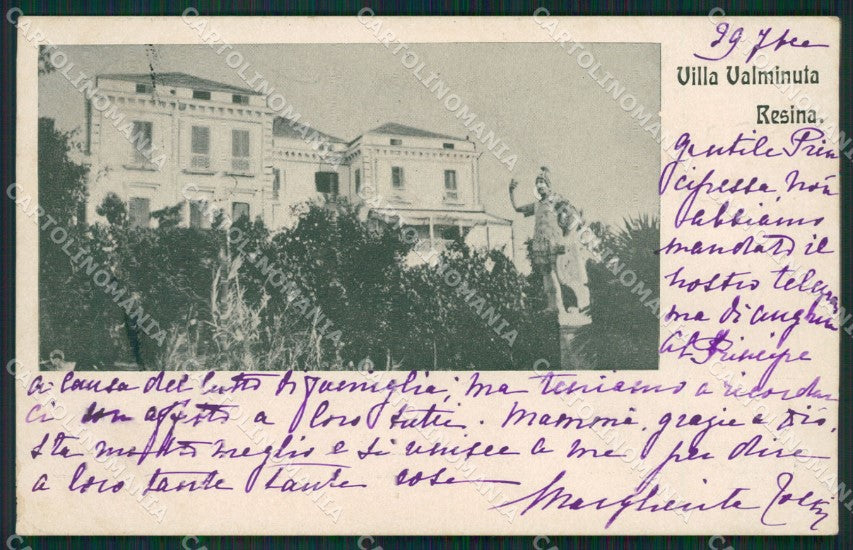 29 7bre
Villa Valminuta
Resina.
Gentile Prin
cipessa, non
abbiamo
mandato il
nostro telegram
ma di auguri
al Principe
a causa del lutto di famiglia; ma teniamo a ricordar
ci con affetto a loro tutti. Mammà, grazie a Dio,
sta molto meglio e si unisce a me per dire
a loro tante tante cose
Margherita
CARTOLINOMANIA